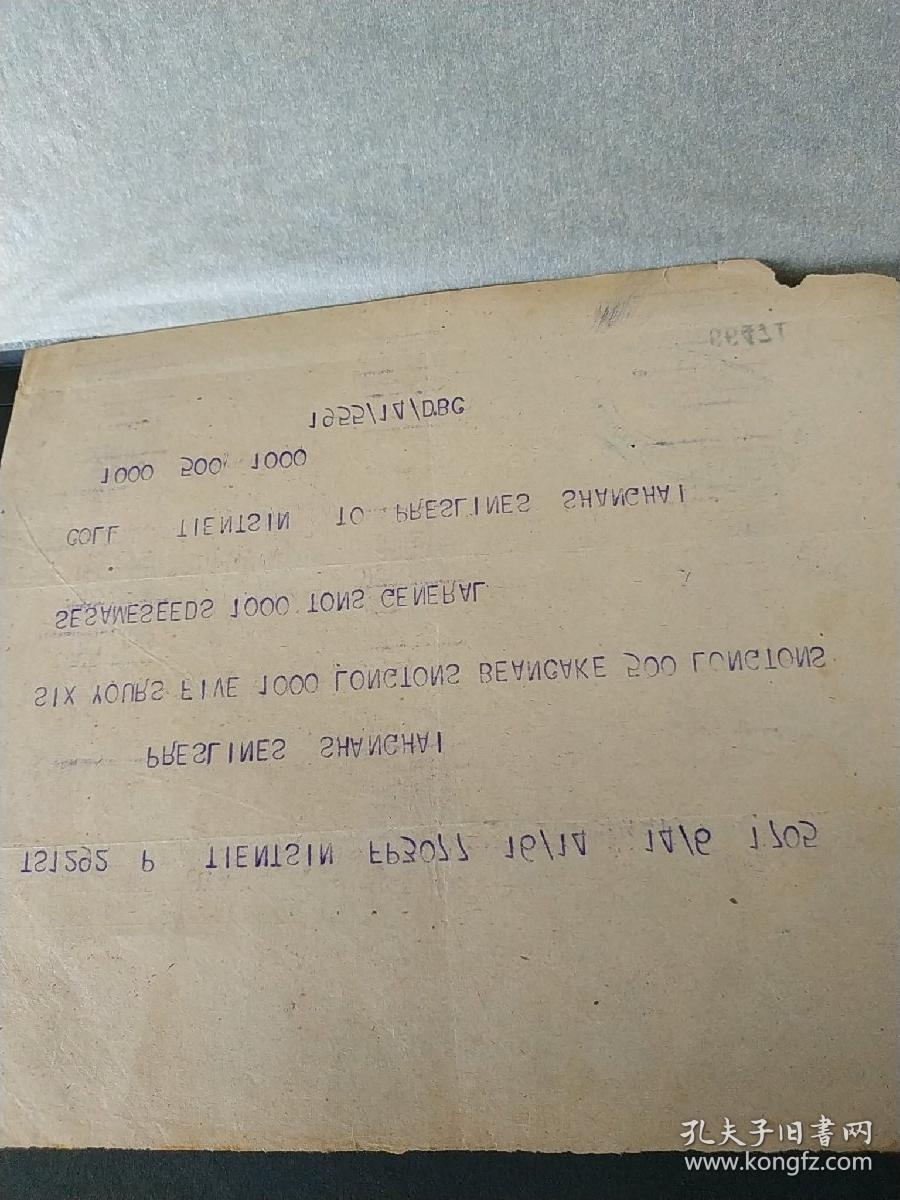 TS1292 P TIENTSIN FP3077 16/14 14/6 1705
PRESLINES SHANGHAI
SIX YOURS FIVE 1000 LONGTONS BEANCAKE 500 LONGTONS
SESAMESEEDS 1000 TONS GENERAL
COLL TIENTSIN TO PRESLINES SHANGHAI
1000 500 1000
1955/14/DBG
孔夫子旧書网
www.kongfz.com